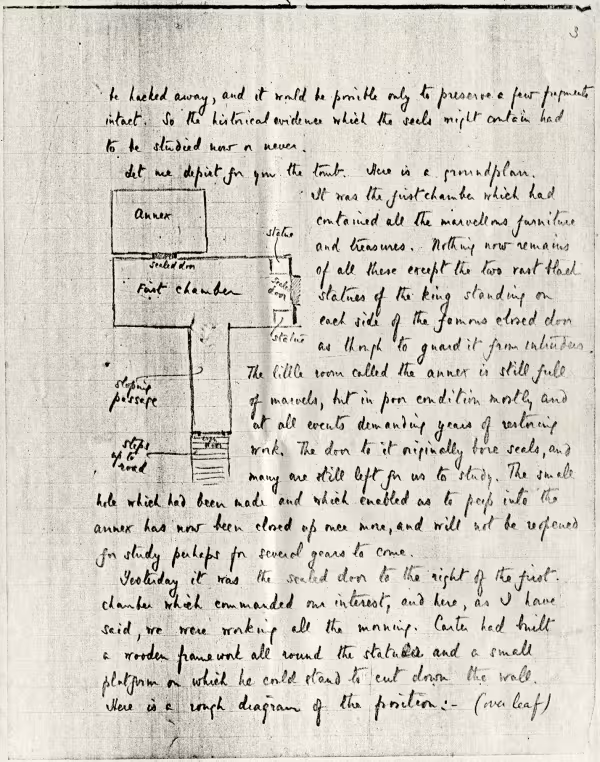 3
be hacked away, and it would be possible only to preserve a few fragments
intact. So the historical evidence which the seals might contain had
to be studied now or never.
Let me depict for you the tomb. Here is a groundplan.
It was the first chamber which had
contained all the marvellous furniture
and treasures. Nothing now remains
of all these except the two vast black
statues of the king standing on
each side of the famous closed door
as though to guard it from intruders.
The little room called the annex is still full
of marvels, but in poor condition mostly and
at all events demanding years of restoring
work. The door to it originally bore seals, and
many are still left for us to study. The small
hole which had been made and which enabled us to peep into the
annex has now been closed up once more, and will not be reopened
for study perhaps for several years to come.
Yesterday it was the sealed door to the right of the first
chamber which commanded our interest, and here, as I have
said, we were working all the morning. Carter had built
a wooden framework all round the statues and a small
platform on which he could stand to cut down the wall.
Here is a rough diagram of the position:- (over leaf)
Annex
sealed door
First chamber
statue
sealed
door
statue
sloping
passage
steps
up to
road